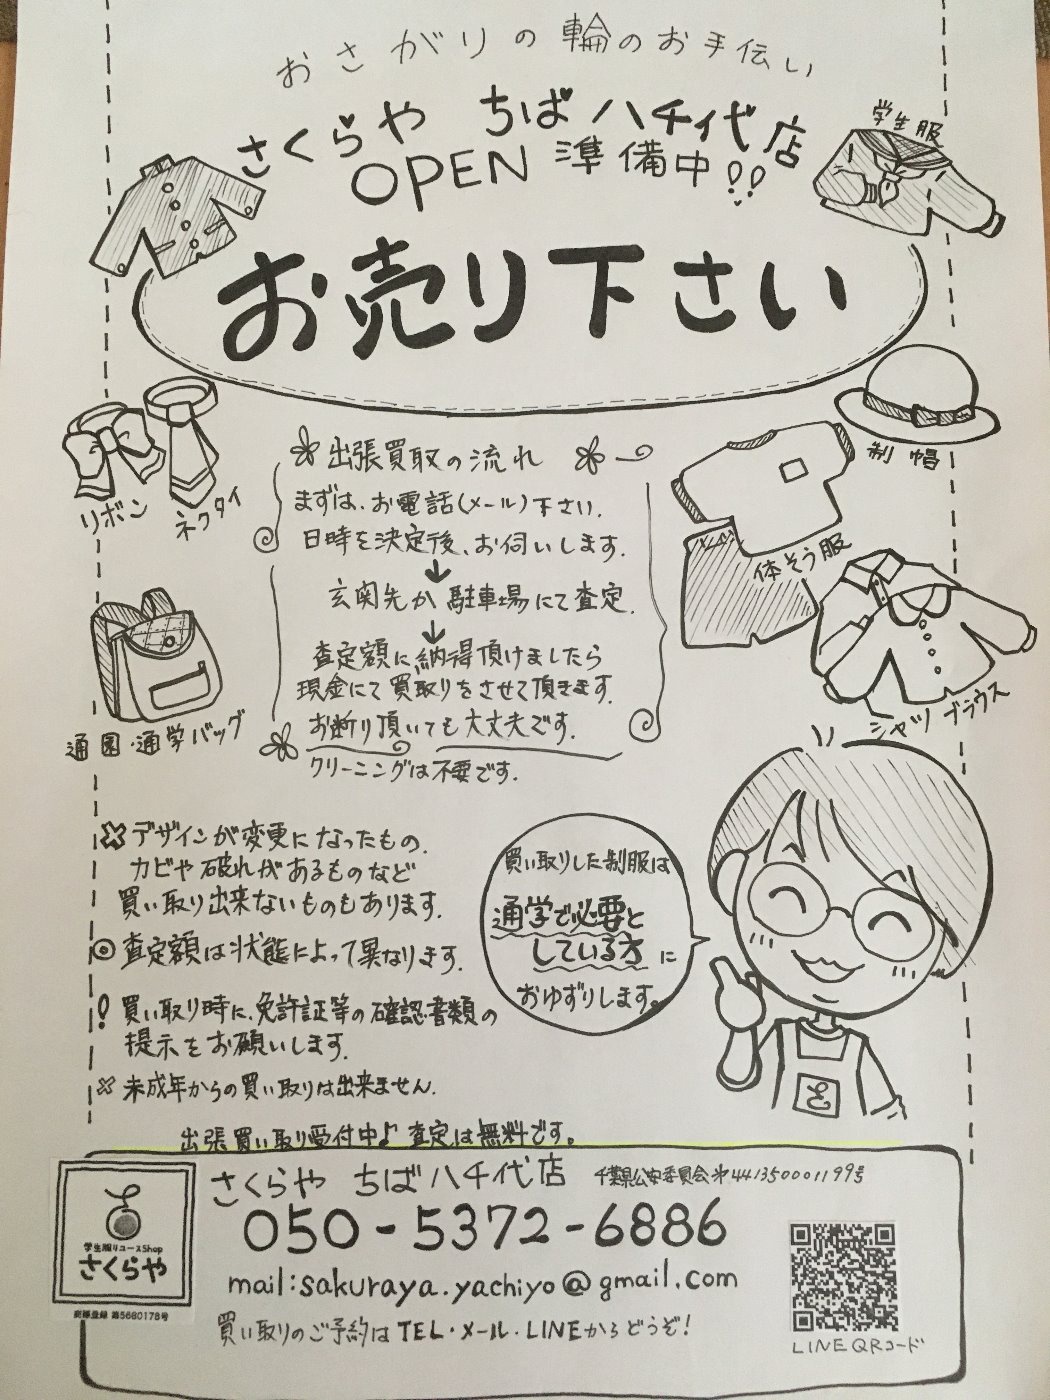 おさがりの輪のお手伝い
さくらや ちば八千代店
OPEN 準備中!!
学生服
お売り下さい
リボン
ネクタイ
制帽
体そう服
シャツ ブラウス
通園・通学バッグ
出張買取の流れ
まずは、お電話(メール)下さい.
日時を決定後、お伺いします.
↓
玄関先か駐車場にて査定.
↓
査定額に納得頂けましたら
現金にて買取りをさせて頂きます.
お断り頂いても大丈夫です.
クリーニングは不要です.
デザインが変更になったもの.
カビや破れがあるものなど
買い取り出来ないものもあります.
◎査定額は状態によって異なります.
! 買い取り時に、免許証等の確認書類の
提示をお願いします.
※ 未成年からの買い取りは出来ません.
買い取りした制服は
通学で必要と
している方に
おゆずりします。
出張買い取り受付中♪査定は無料です。
さくらや ちば八千代店 千葉県公安委員会 441350001199号
学生服リユースShop
さくらや
商標登録 第5680178号
050-5372-6886
mail:sakuraya.yachiyo@gmail.com
買い取りのご予約はTEL・メール・LINEからどうぞ!
LINE QRコード